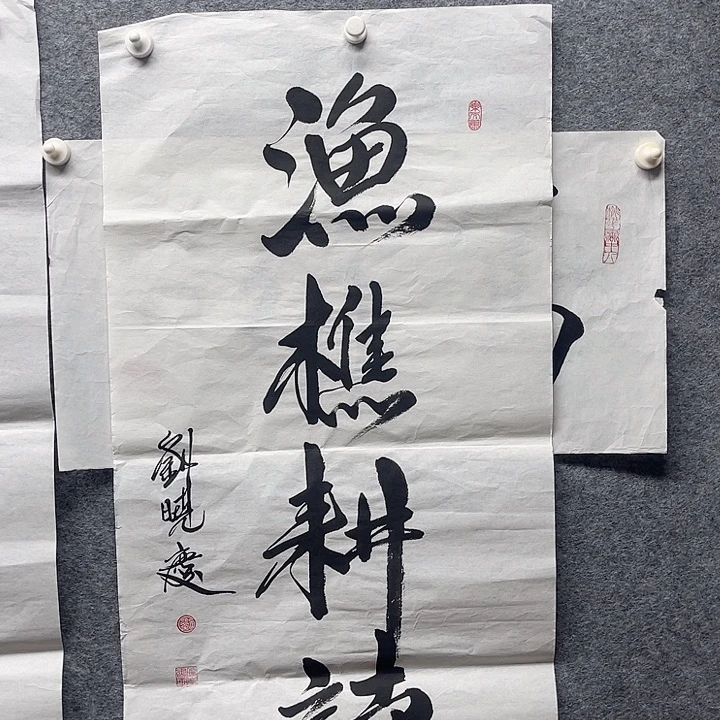 漁樵耕讀
劉曉慶